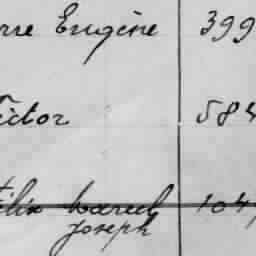 rre Eugène 399
Victor 584
Félix Marcel 104
Joseph